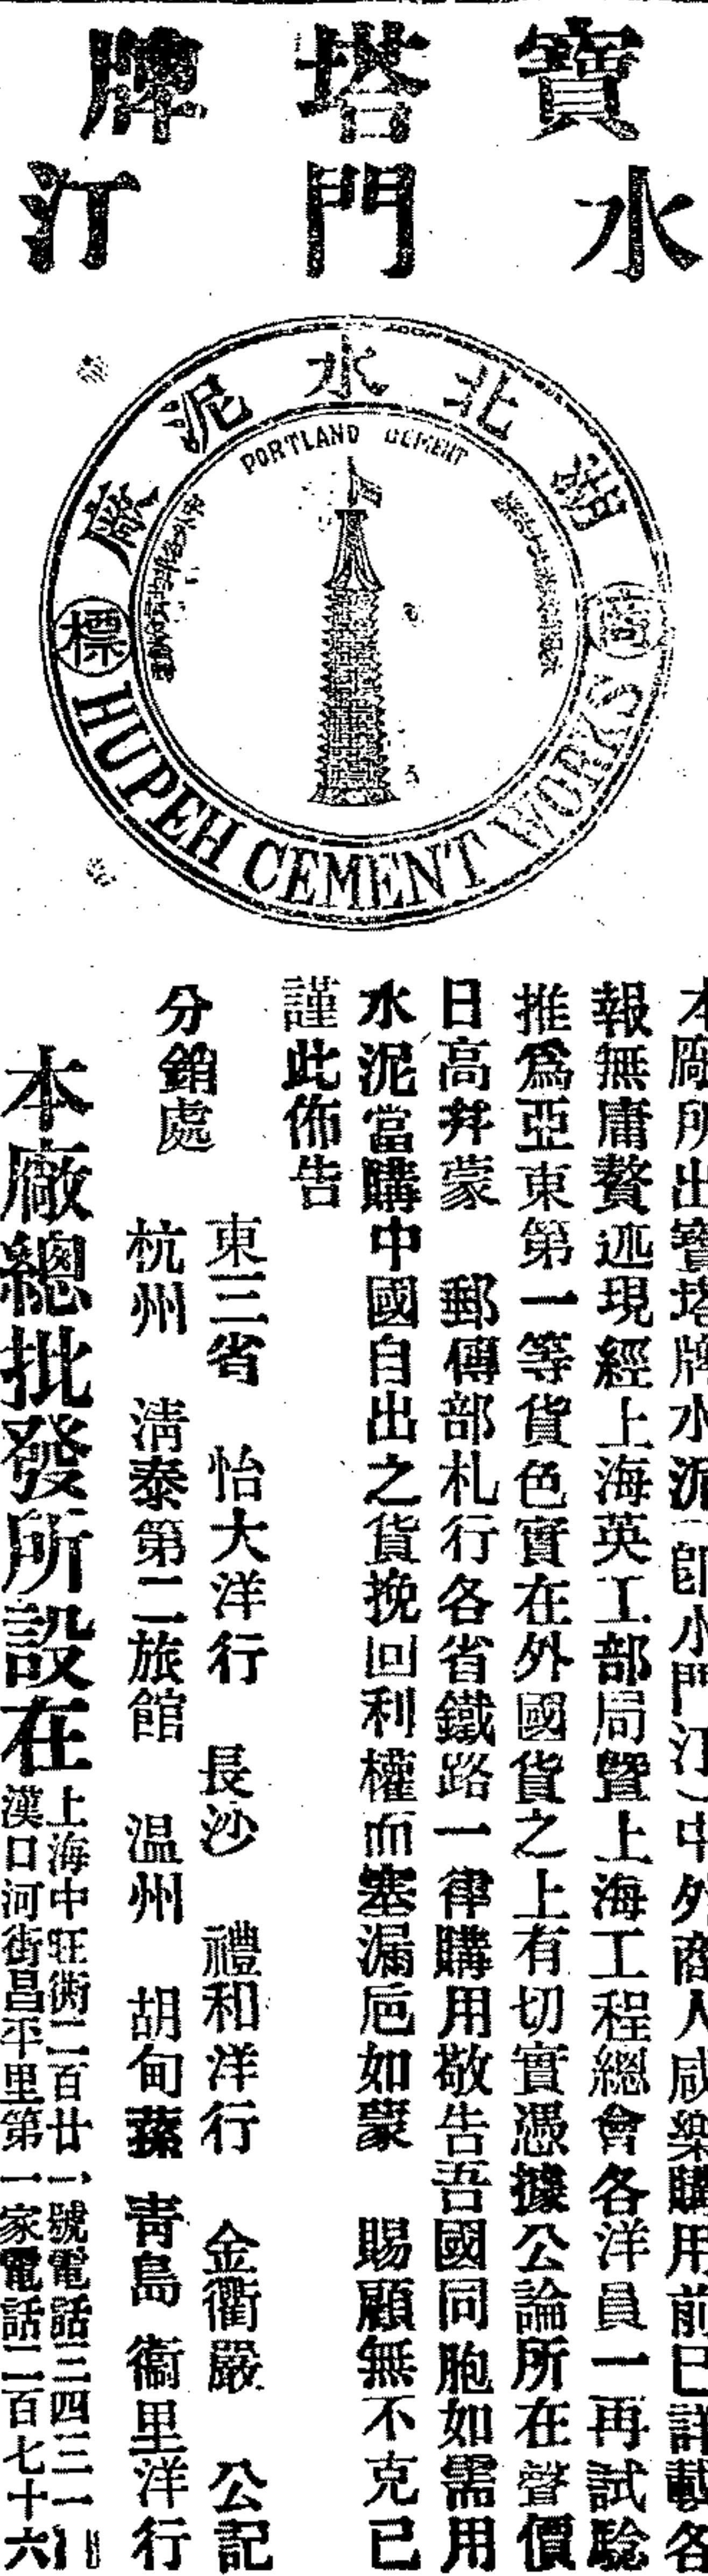 寶塔牌
水門汀
湖北水泥廠
PORTLAND CEMENT
商標
HUPEH CEMENT WORKS
本廠所出寶塔牌水泥(卽水門汀)中外商人咸樂購用前已詳載各
報無庸贅述現經上海英工部局曁上海工程總會各洋員一再試驗
推爲亞東第一等貨色實在外國貨之上有切實憑據公論所在聲價
日高幷蒙 郵傳部札行各省鐵路一律購用敬告吾國同胞如需用
水泥當購中國自出之貨挽回利權而塞漏卮如蒙 賜顧無不克已
謹此佈告
分銷處
東三省 怡大洋行 長沙 禮和洋行 金衢嚴 公記
杭州 淸泰第二旅館 温州 胡甸蓀 靑島 衞里洋行
本廠總批發所設在
上海中旺街二百廿一號電話三四三一
漢口河街昌平里第一家電話二百七十六